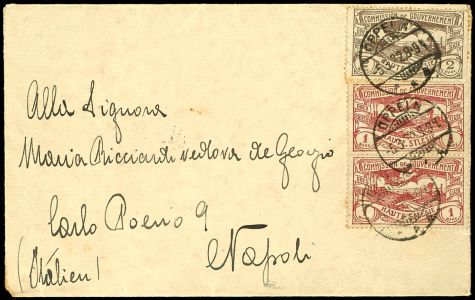 Alla Signora
Maria Ricciardi vedova de Georgio
Carlo Poerio 9
Napoli
(Italien)
OPPELN
COMMISSION DE GOUVERNEMENT
HAUTE SILESIE
2
OPPELN
COMMISSION DE GOUVERNEMENT
1 1
COMMISSION DE GOUVERNEMENT
HAUTE SILESIE
1